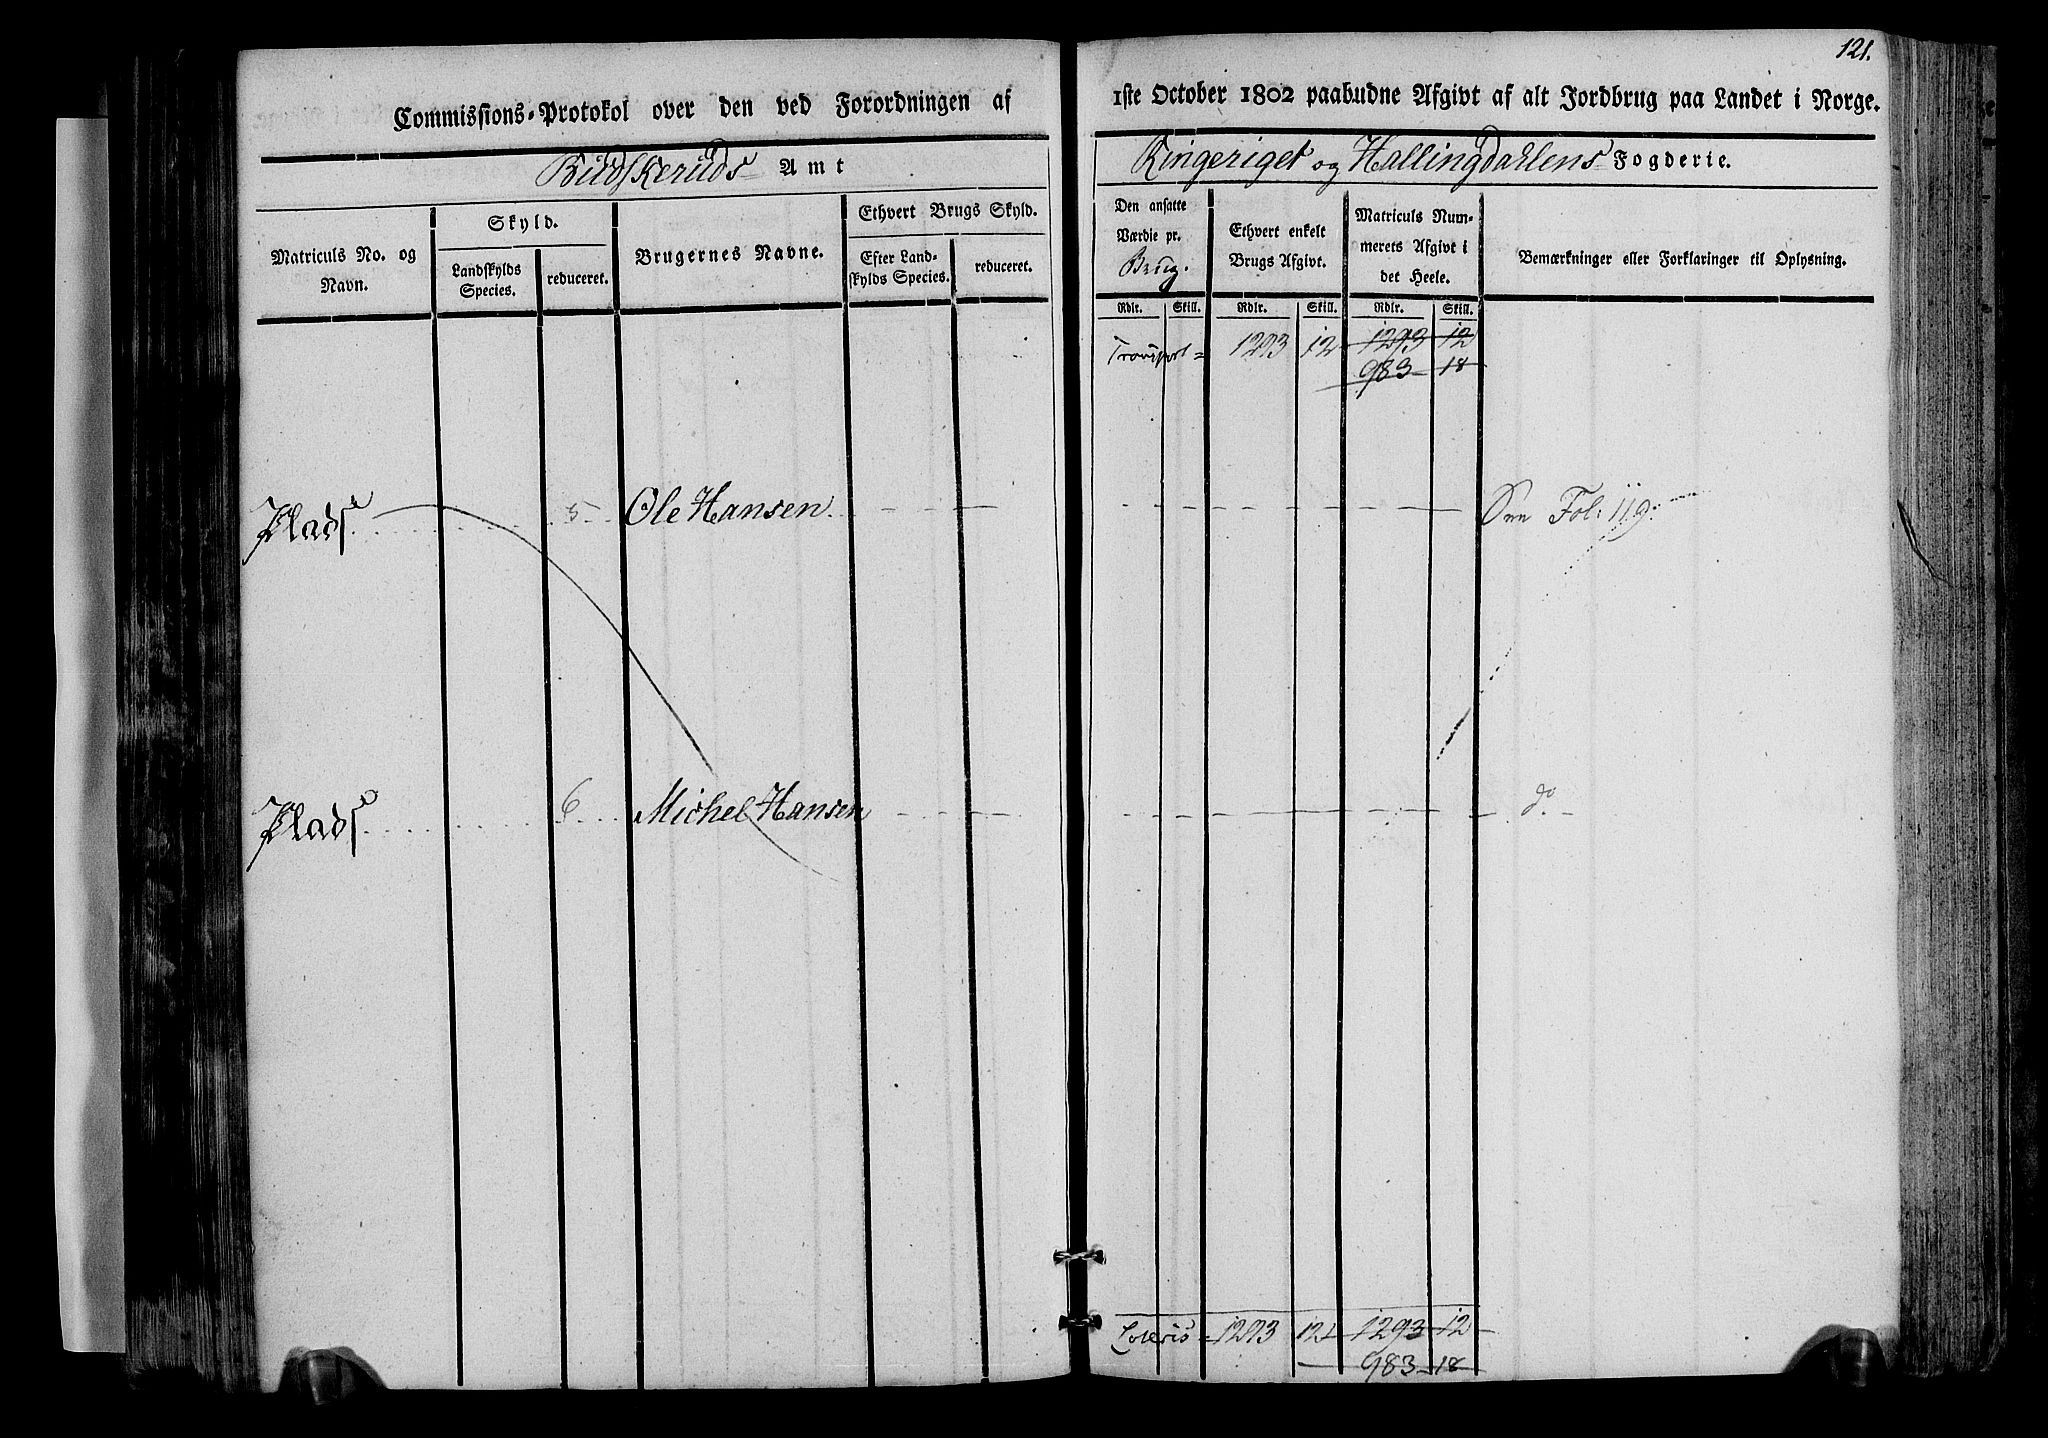 121.
Commissions-Protokol over den ved Forordningen af 1ste October 1802 paabudne Afgivt af alt Jordbrug paa Landet i Norge.
Budskeruds Amt
Ringeriget og Hallingdahlens Fogderie.
Matriculs No. og Navn.
Skyld.
Landskylds Species.
reduceret.
Brugernes Navne.
Ethvert Brugs Skyld.
Efter Landskylds Species.
reduceret.
Den ansatte Værdie pr. Brug.
Ethvert enkelt Brugs Afgivt.
Matriculs Nummerets Afgivt i det Heele.
Bemærkninger eller Forklaringer til Oplysning.
Rdlr. Skill. Rdlr. Skill. Rdlr. Skill.
Transport = 1293 12 1293 12
983 18
Plads 5 Ole Hansen See Fol: 119.
Plads 6 Michel Hansen do.
Lateris = 1293 12 1293 12
983 18